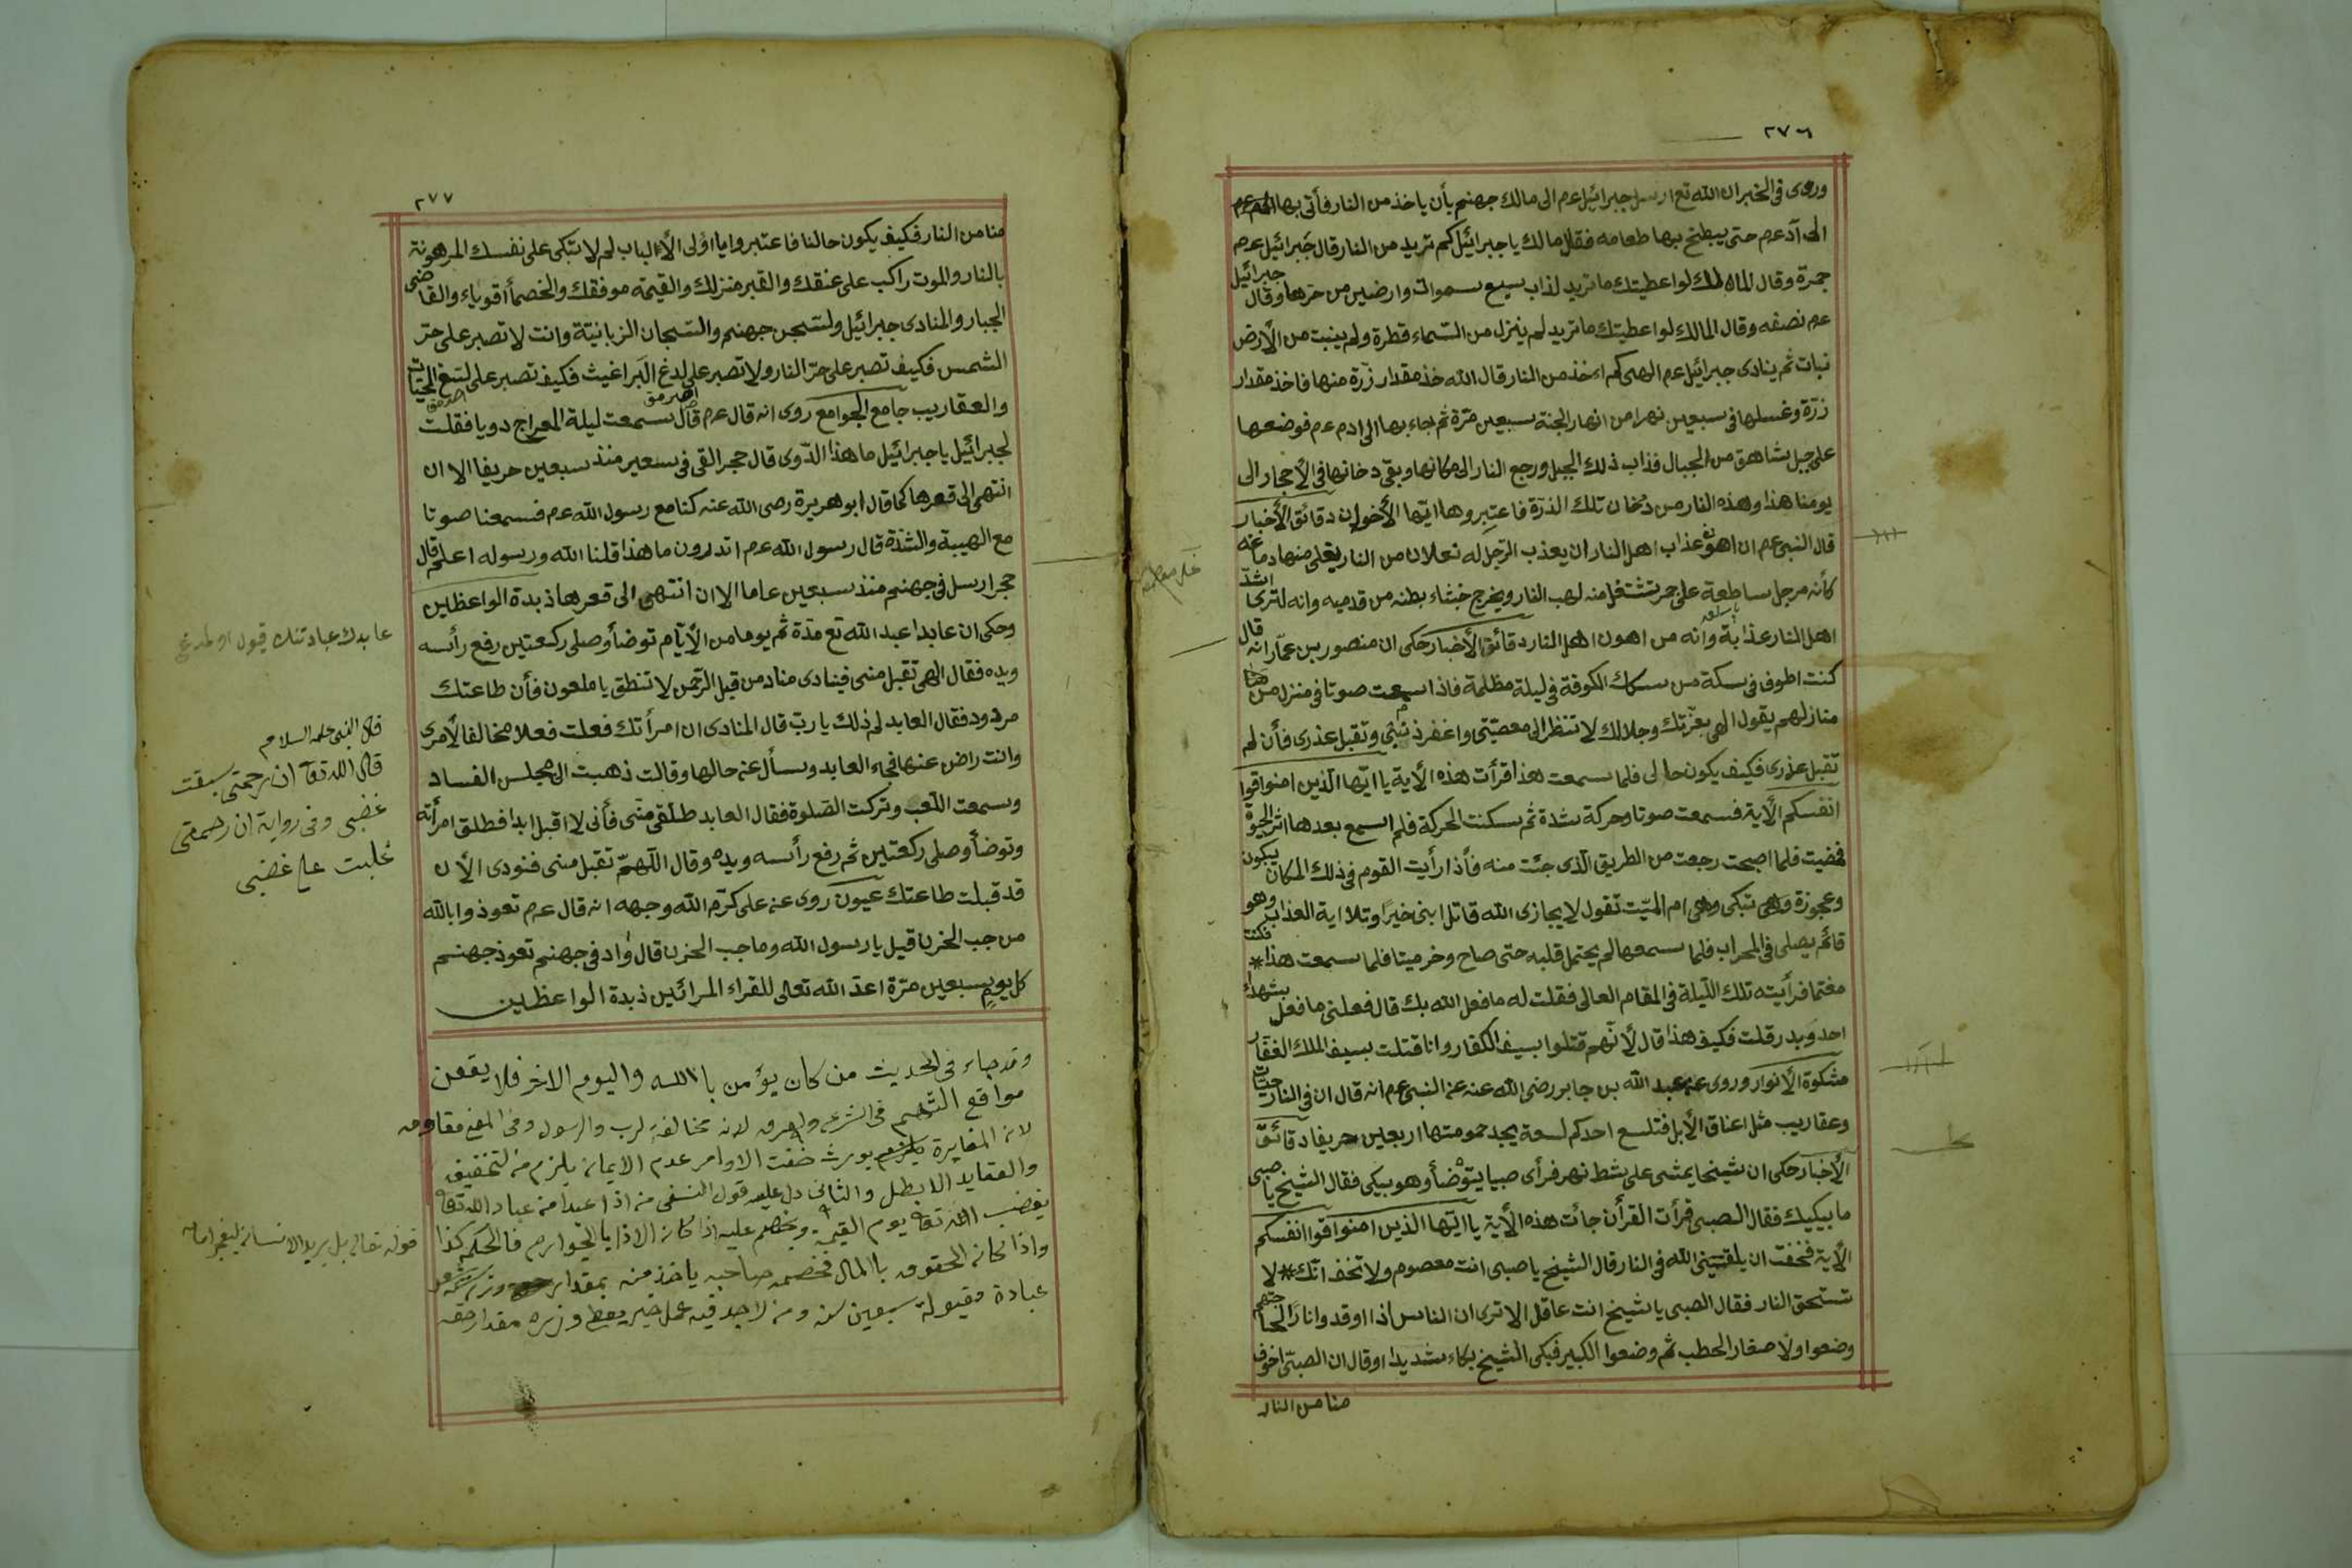 ٢٧٦
وروى في الخبر ان الله تع ارسل جبرائيل عم الى مالك جهنم بأن ياخذ من النار فأتى بها
الى آدعم حتى يطبخ بها طعامه فقال مالك يا جبرائيل كم تريد من النار قال جبرائيل عم
جمرة وقال المالك لو اعطيتك ما تريد لذاب سبع سموات وارضين من حرها وقال جبرائيل
عم نصفه وقال المالك لو اعطيتك ما تريد لم ينزل من السماء قطرة ولم ينبت من الأرض
نبات ثم ينادى جبرائيل عم الهى كم اخذ من النار قال الله خذ مقدار زرّة منها فاخذ مقدار
زرّة وغسلها في سبعين نهرا من انهار الجنة سبعين مرّة ثم جاء بها الى ادم عم فوضعها
على جبل شاهق من الجبال فذاب ذلك الجبل ورجع النار الى مكانها وبقى دخانها في الأحجار الى
يومنا هذا وهذه النار من دخان تلك الذرّة فاعتبروها ايّها الأخوان دقائق الأخبار
قال النبى عم ان اهون عذاب اهل النار ان يعذب الرّجل له نعلان من النار يغلى منها دماغه
كأنه مرجل ساطعة على جمر تشتغل منه لهب النار ويخرج خشاء بطنه من قدميه وانه لترى اشدّ
اهل النار عذابة وانه من اهون اهل النار دقائق الأخبار حكى ان منصور بن عمّار انه قال
كنت اطوف في سكة من سكك الكوفة في ليلة مظلمة فاذا سمعت صوتا في منزل من
منازلهم يقول الهى بعزّتك وجلالك لا تنظر الى معصيّتى واغفر ذنبى وتقبل عذرى فأن لم
تقبل عذرى فكيف يكون حالى فلما سمعت هذا قرأت هذه الأية يا ايّها الّذين امنوا قوا
انفسكم الأية فسمعت صوتا وحركة شدة ثم سكنت الحركة فلم اسمع بعدها اثر الحيوة
فمضيت فلما اصبحت رجعت من الطريق الّذى جئت منه فأذا رأيت القوم في ذلك المكان يبكون
وعجوزة وهى تبكى وهى ام الميّت تقول لا يجازى الله قاتل ابنى خيرًا وتلا اية العذاب وهو
قائم يصلى في المحراب فلما سمعها لم يحتمل قلبه حتى صاح وخر ميتا فلما سمعت هذا * فكنت
مغتما فرأيته تلك اللّيلة في المقام العالى فقلت له ما فعل الله بك قال فعلنى ما فعل بشهداء
احد وبدر قلت فكيف هذا قال لأنّهم قتلوا بسيف الكفار وانا قتلت بسيف الملك الغفّار
مشكوة الأنوار وروى عن عبد الله بن جابر رضى الله عنه عن النبى عم انه قال ان في النار حيّات
وعقاريب مثل اعناق الأبل فتلسع احدكم لسعة يجد حمومتها اربعين حريفا دقائق
الأخبار حكى ان شيخا يمشى على شط نهر فرأى صبيا يتوضّأ وهو يبكى فقال الشيخ يا صبى
ما يبكيك فقال الصبى قرأت القرأن جائت هذه الأية يا ايّها الذين امنوا قوا انفسكم
الأية فخفت ان يلقينى الله في النار قال الشيخ يا صبى انت معصوم ولا تخف انّك * لا
تستحق النار فقال الصبى يا شيخ انت عاقل الا ترى ان الناس اذا اوقدوا نارًا
وضعوا ولا صغار الحطب ثم وضعوا الكبير فبكى الشيخ بكاء شديدا وقال ان الصبىّ اخوف
منا من النار
٢٧٧
منا من النار فكيف يكون حالنا فاعتبروا يا اؤلى الألباب لم لا تبكى على نفسك المرهونة
بالنار والموت راكب على عنقك والقبر منزلك والقيمة موفقك والخصمأ اقوياء والقاضى
الجبار والمنادى جبرائيل ولسّجن جهنم والسّجان الزبانيّة وانت لا تصبر على حرّ
الشمس فكيف تصبر على حرّ النار ولا تصبر على لدغ البراغيث فكيف تصبر على لسّع الحيّات
والعقاريب جامع الجوامع روى انه قال عم قال سمعت ليلة المعراج دويا فقلت
لجبرائيل يا جبرائيل ما هذا الدّوى قال حجر القى في سعير منذ سبعين حريفا الا ان
انتهى الى قعرها كما قال ابو هريرة رضى الله عنه كنا مع رسول الله عم فسمعنا صوتا
مع الهيبة والشدّة قال رسول الله عم اتدرون ما هذا قلنا الله ورسوله اعلم قال
حجر ارسل في جهنم منذ سبعين عاما الا ان انتهى الى قعرها ذبدة الواعظين
وحكى ان عابدا عبد الله تع مدّة ثم يوما من الأيّام توضأ وصلى ركعتين رفع رأسه
ويده فقال الهى تقبل منى فينادى مناد من قبل الرّحمن لا تنطق يا ملعون فأن طاعتك
مردود فقال العابد لم ذلك يا ربّ قال المنادى ان امرأتك فعلت فعلا مخالفا لأمرى
وانت راض عنها فجاء العابد وسأل عن حالها وقالت ذهبت الى مجلس الفساد
وسمعت اللّعب وتركت الصّلوة فقال العابد طلّقى منّى فأنى لا اقبل ابدا فطلق امرأته
وتوضأ وصلى ركعتين ثم رفع رأسه ويده وقال اللّهمّ تقبل منى فنودى الأن
قد قبلت طاعتك عيون روى عن على كرّم الله وجهه انه قال عم تعوذوا بالله
من جب الحزن قيل يا رسول الله وما جب الحزن قال واد في جهنم تعوذ جهنم
كل يوم سبعين مرّة اعدّ الله تعالى للقراء المرائين ذبدة الواعظين
وقد جاء في الحديث من كان يؤمن باالله واليوم الاخر فلا يقفن
مواقع التهم في الشرع والعرف لانه مخالفة لرب والرسول وفى
لانه المغايرة يورث ضعف الاوامر عدم الايمان يلزم منه لتخفيف
والعقايد الا بطل والثانى دل عليه قول النسفى من اذا عبدا من عباد الله تعا
يغضب الله تعا يوم القيمة ويخصم عليه اذا كان الاذا با لجوارح فالحكم كذا
واذا كان الحقوق باالمال فخصمه صاحبه ياخذ منه بمقدار
عبادة مقبولة سبعين سنة ومن لا يجد فيه عمل خير يعطى وزره مقدار حقه
عابدك عبادتنك قبول
قال النبى عليه السلام
قال الله تعا ان رحمتى سبقت
غضبى وفى رواية ان رحمتى
غلبت على غضبى
قوله تعالى بل يريد الانسان ليفجر امامه